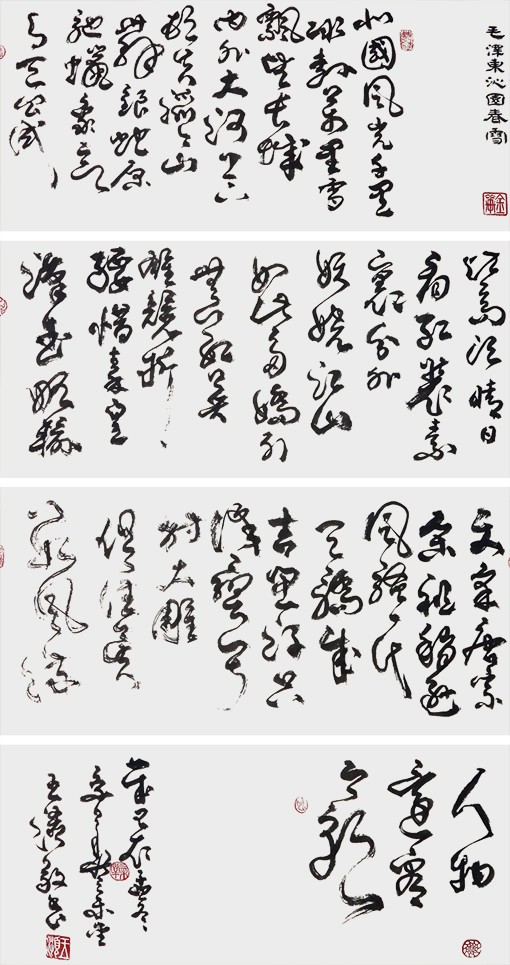 毛澤東沁園春雪
北國風光千里
冰封萬里雪
飄望長城
內外大河上下
頓失滔滔山
舞銀蛇原
馳蠟象欲
与天公試
比高須晴日
看紅裝素
裹分外
妖嬈江山
如此多嬌引
無數英
雄競折
腰惜秦皇
漢武略輸
文采唐宗
宋祖稍遜
風騷一代
天驕成
吉思汗只
識彎弓
射大雕
俱往矣
數風流
人物
還看
今朝